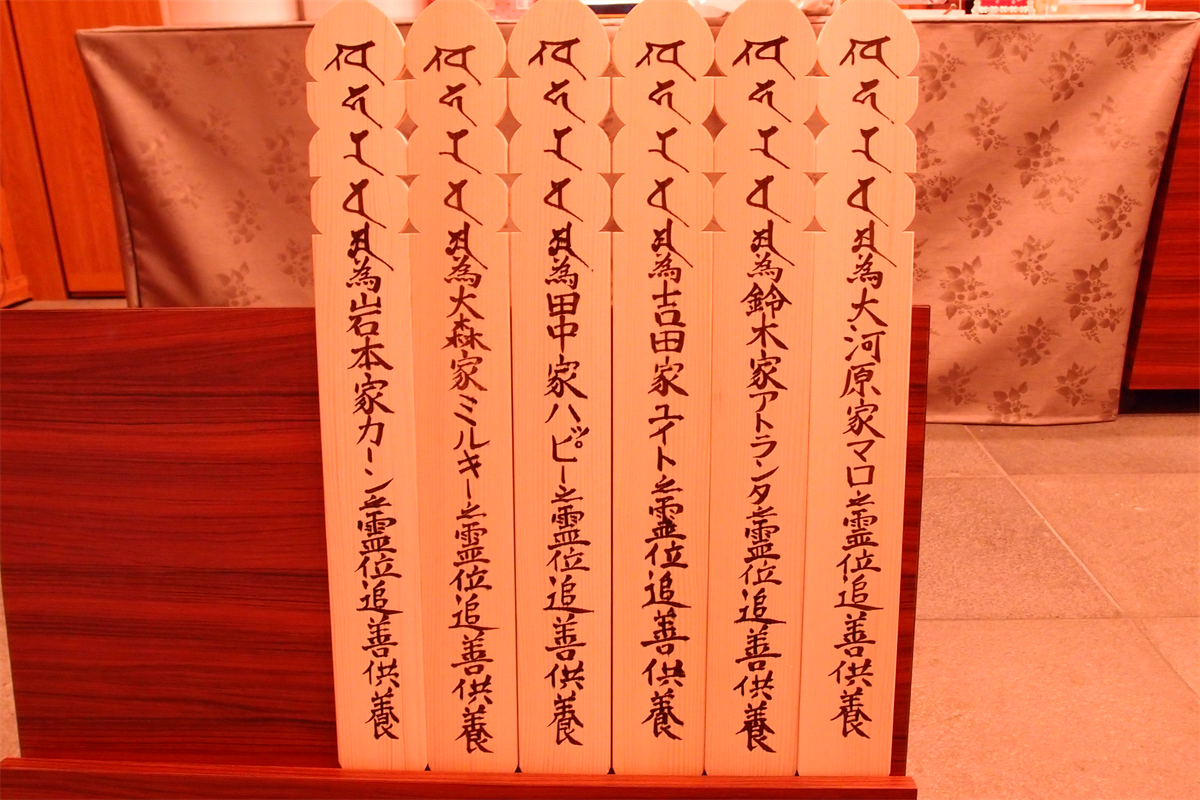 為大河原家マロ之霊位追善供養
為鈴木家アトランタ之霊位追善供養
為吉田家ユイト之霊位追善供養
為田中家ハッピー之霊位追善供養
為大森家ミルキー之霊位追善供養
為岩本家カーン之霊位追善供養